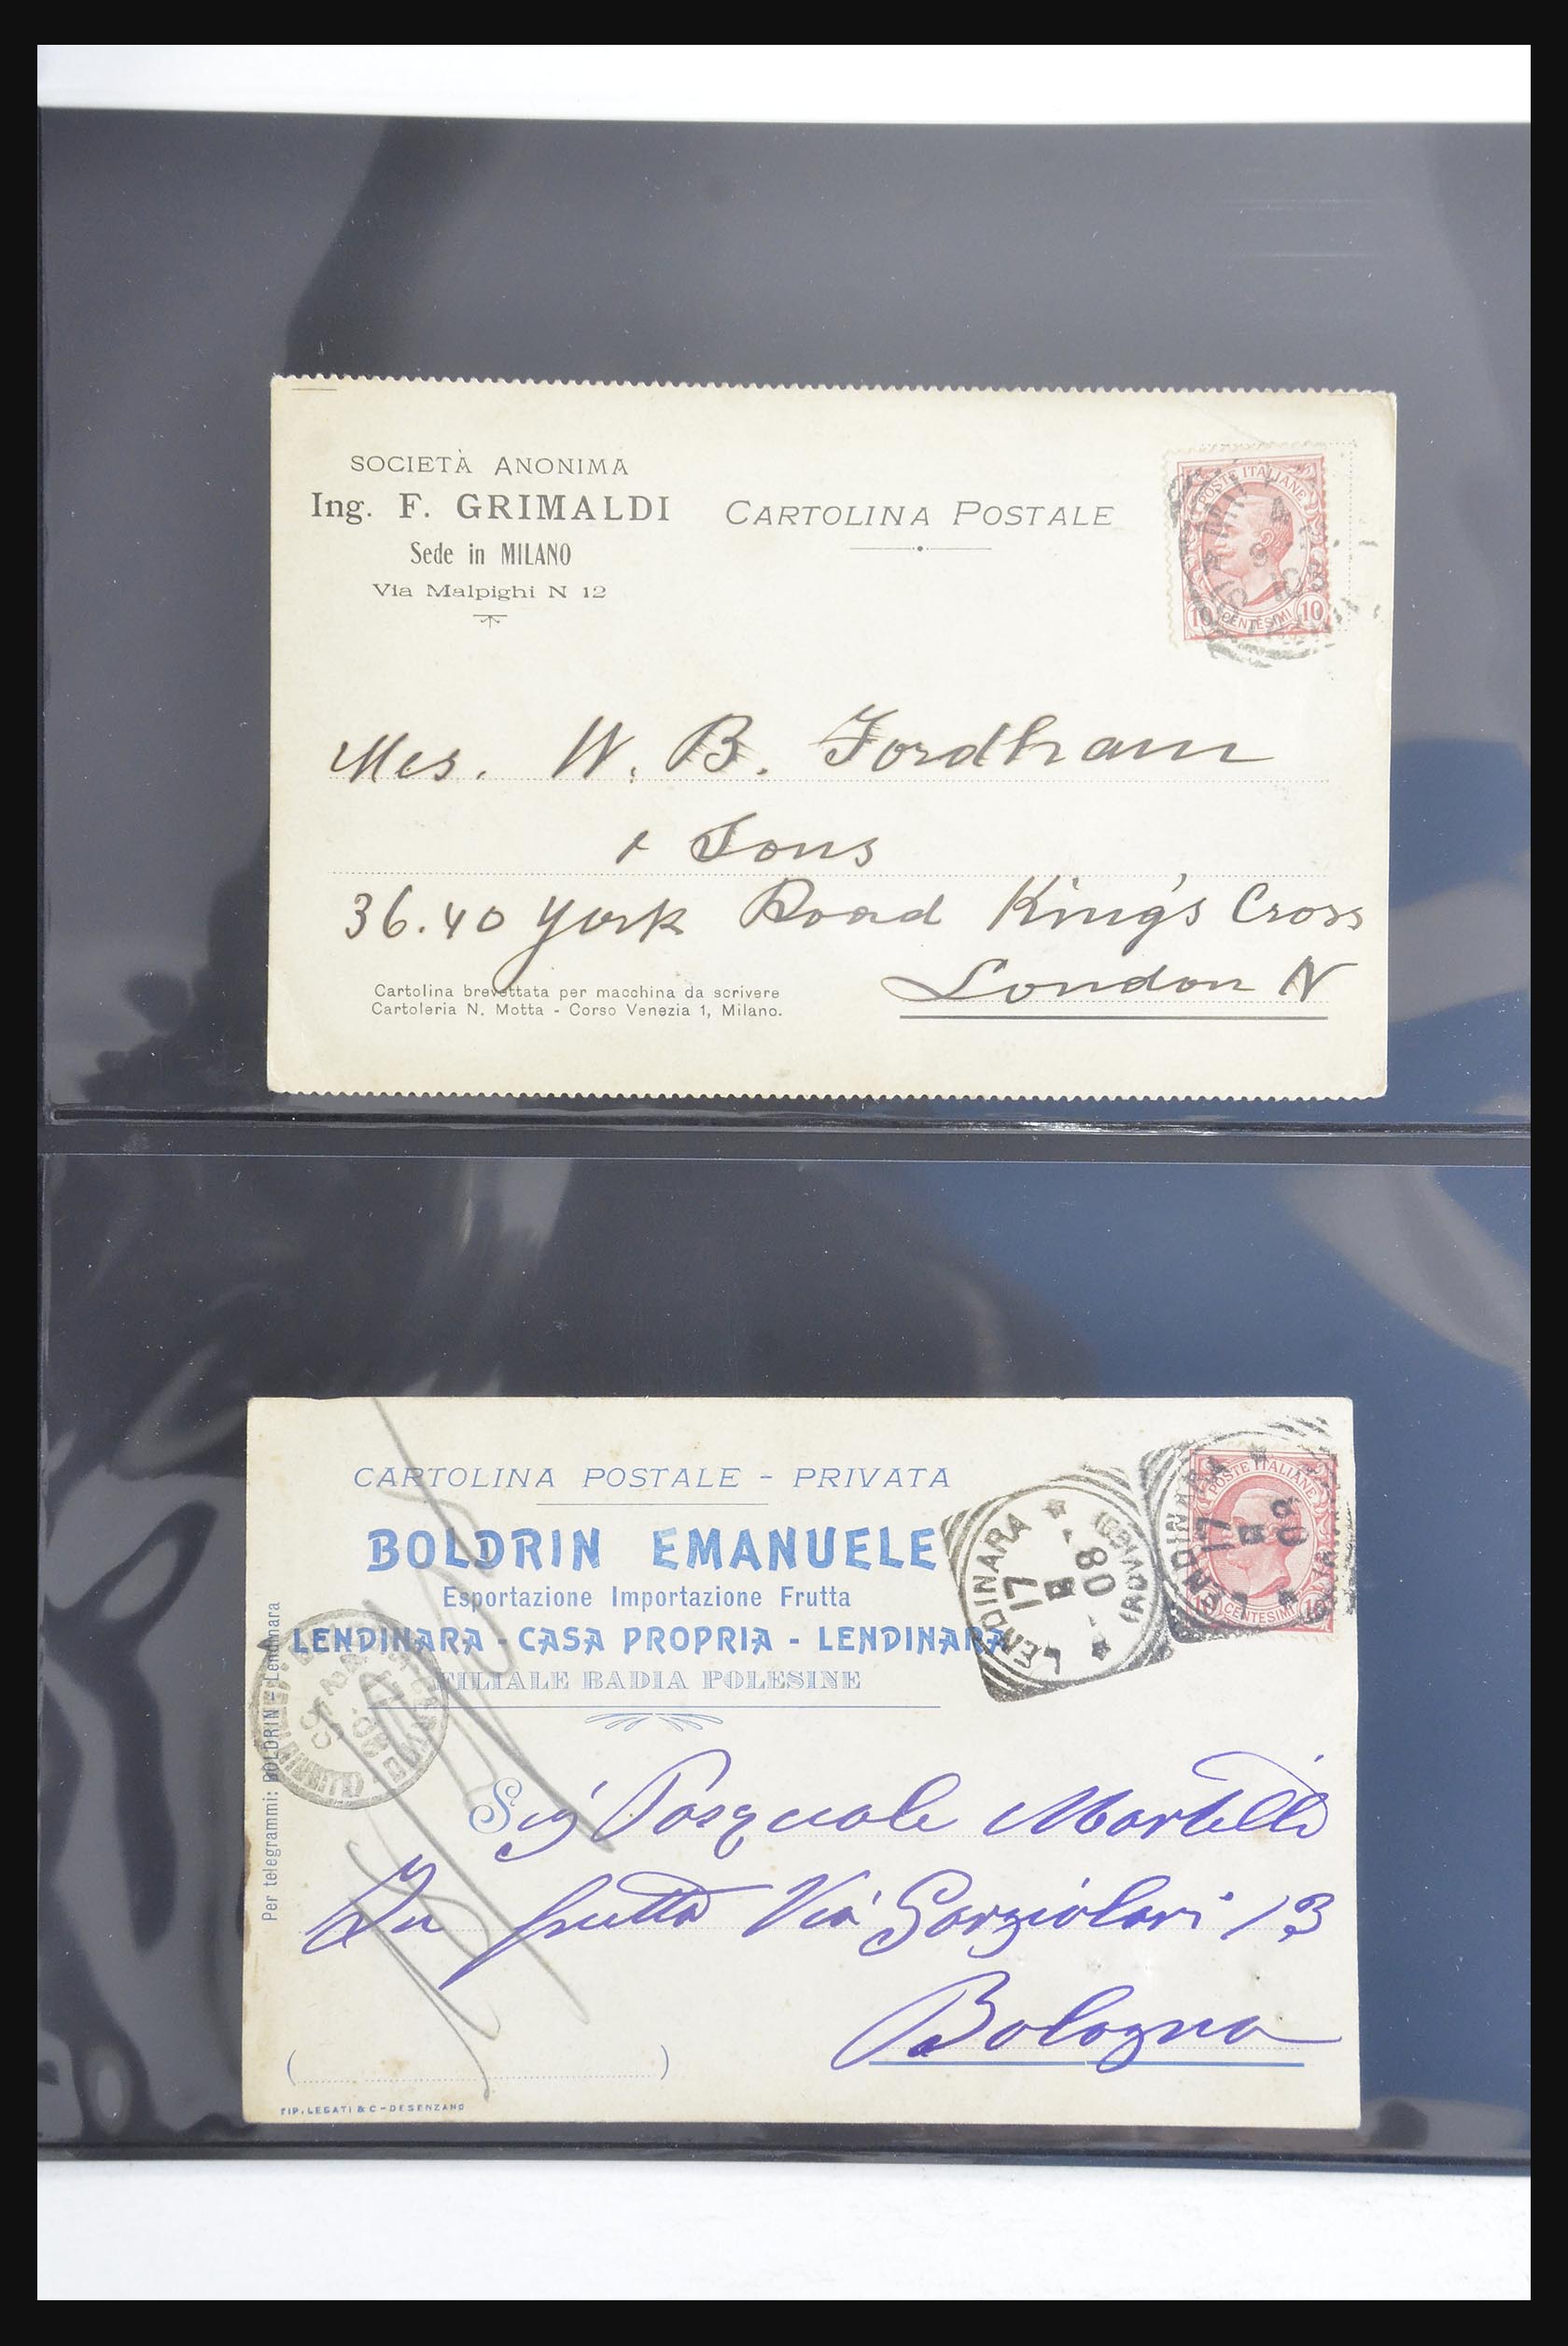 SOCIETÀ ANONIMA
Ing. F. GRIMALDI
Sede in MILANO
Via Malpighi N 12
CARTOLINA POSTALE
POSTE ITALIANE
10 CENTESIMI 10
Mes. W. B. Fordham
& Sons
36.40 York Road King's Cross
London N
Cartolina brevettata per macchina da scrivere
Cartoleria N. Motta - Corso Venezia 1, Milano.
CARTOLINA POSTALE - PRIVATA
BOLDRIN EMANUELE
Esportazione Importazione Frutta
LENDINARA - CASA PROPRIA - LENDINARA
FILIALE BADIA POLESINE
Per telegrammi: BOLDRIN - Lendinara
LENDINARA
(ROVIGO)
17
08
POSTE ITALIANE
10 CENTESIMI 10
LENDINARA
17
08
Sig Pasquale Martelli
frutta Via Garziolari 13
Bologna
( )
TIP. LEGATI & C - DESENZANO